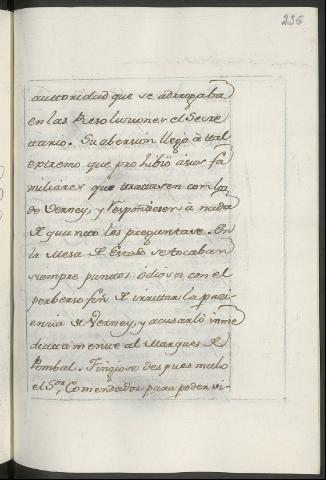 236
authoridad que se adrrogaba
en las Resoluziones el Secre
tario. Su abersion llegò à tal
extremo que prohibiò à sus fa
miliares que tratasen con
do Verney, y respondiesen à nada
de quanto les preguntase. En
la Mesa de Estado se tocaban
siempre puntos odiosos con el
perberso fin de irritar la pazi-
enzia de Verney, y acusarlo inme
diatamente al Marques de
Pombal. Fingiose despues malo
el Sor. Comendador para poder vi-